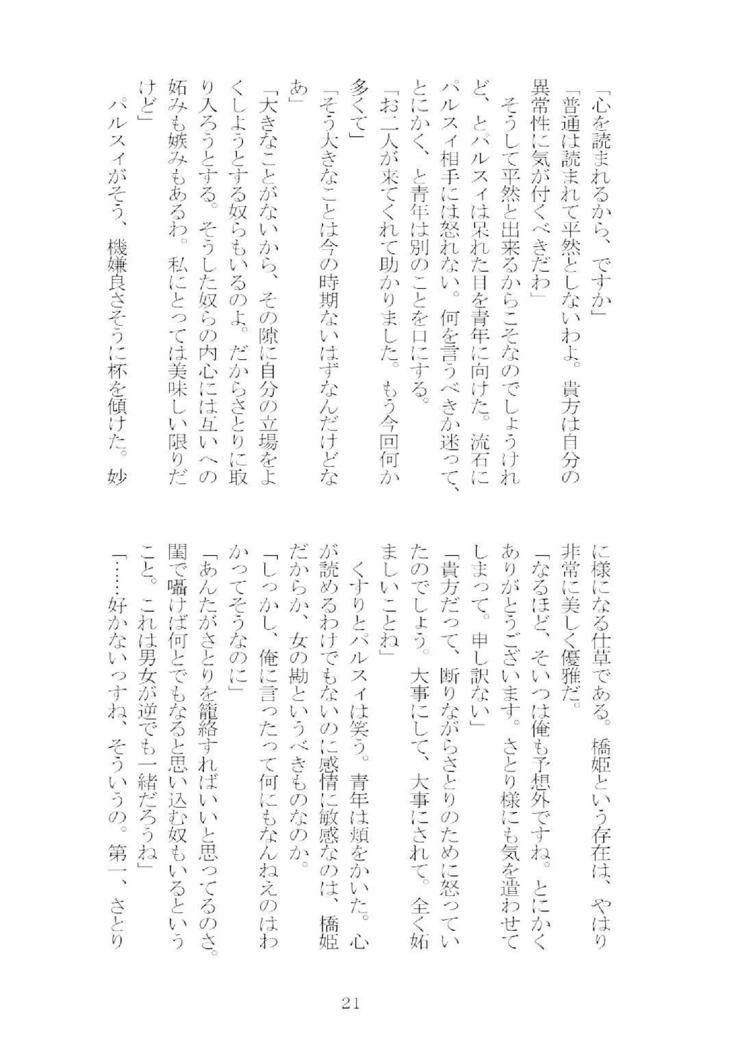 「心を読まれるから、ですか」
「普通は読まれて平然としないわよ。貴方は自分の
異常性に気が付くべきだわ」
そうして平然と出来るからこそなのでしょうけれ
ど、とパルスィは呆れた目を青年に向けた。流石に
パルスィ相手には怒れない。何を言うべきか迷って、
とにかく、と青年は別のことを口にする。
「お二人が来てくれて助かりました。もう今回何か
多くて」
「そう大きなことは今の時期ないはずなんだけどな
あ」
「大きなことがないから、その隙に自分の立場をよ
くしようとする奴らもいるのよ。だからさとりに取
り入ろうとする。そうした奴らの内心には互いへの
妬みも嫉みもあるわ。私にとっては美味しい限りだ
けど」
パルスィがそう、機嫌良さそうに杯を傾けた。妙
に様になる仕草である。橋姫という存在は、やはり
非常に美しく優雅だ。
「なるほど、そいつは俺も予想外ですね。とにかく
ありがとうございます。さとり様にも気を遣わせて
しまって。申し訳ない」
「貴方だって、断りながらさとりのために怒ってい
たのでしょう。大事にして、大事にされて。全く妬
ましいことね」
くすりとパルスィは笑う。青年は頬をかいた。心
が読めるわけでもないのに感情に敏感なのは、橋姫
だからか、女の勘というべきものなのか。
「しっかし、俺に言ったって何にもなんねえのはわ
かってそうなのに」
「あんたがさとりを籠絡すればいいと思ってるのさ。
閨で囁けば何とでもなると思い込む奴もいるという
こと。これは男女が逆でも一緒だろうね」
「……好かないっすね、そういうの。第一、さとり
21